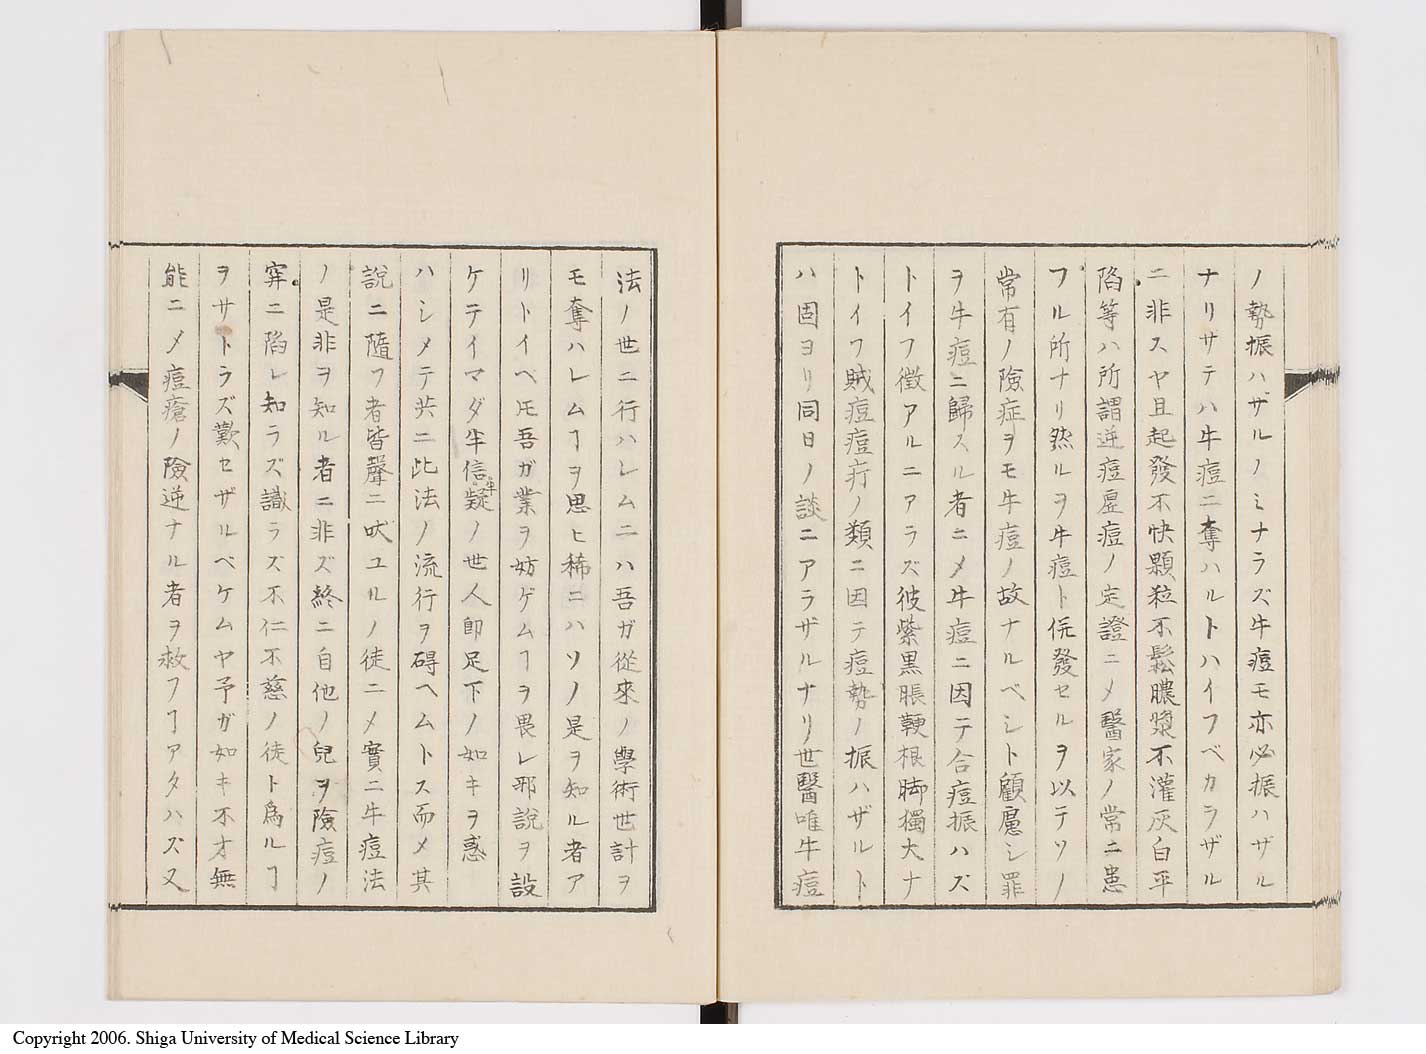 ノ勢振ハザルノミナラズ牛痘モ亦必振ハザル
ナリサテハ牛痘ニ奪ハルトハイフベカラザル
ニ非スヤ且起發不快顆粒不鬆膿漿不灌灰白平
陷等ハ所謂逆痘虛痘ノ定證ニメ醫家ノ常ニ患
フル所ナリ然ルヲ牛痘ト併發セルヲ以テソノ
常有ノ險症ヲモ牛痘ノ故ナルベシト顧慮シ罪
ヲ牛痘ニ歸スル者ニメ牛痘ニ因テ合痘振ハズ
トイフ徵アルニアラズ彼紫黑脹鞕根脚獨大ナ
トイフ賊痘痘疔ノ類ニ因テ痘勢ノ振ハザルト
ハ固ヨリ同日ノ談ニアラザルナリ世醫唯牛痘
法ノ世ニ行ハレムニハ吾ガ從來ノ學術世計ヲ
モ奪ハレムヿヲ思ヒ稀ニハソノ是ヲ知ル者ア
リトイヘ𪜈吾ガ業ヲ妨ゲムヿヲ畏レ邪說ヲ設
ケテイマダ半信疑半ノ世人卽足下ノ如キヲ惑
ハシメテ共ニ此法ノ流行ヲ碍ヘムトス而メ其
說ニ隨フ者皆聲ニ吠ユルノ徒ニメ實ニ牛痘法
ノ是非ヲ知ル者ニ非ズ終ニ自他ノ兒ヲ險痘ノ
穽ニ陷レ知ラズ識ラズ不仁不慈ノ徒ト爲ルヿ
ヲサトラズ歎セザルベケムヤ予ガ如キ不才無
能ニメ痘瘡ノ險逆ナル者ヲ救フヿアタハズ又
Copyright 2006. Shiga University of Medical Science Library